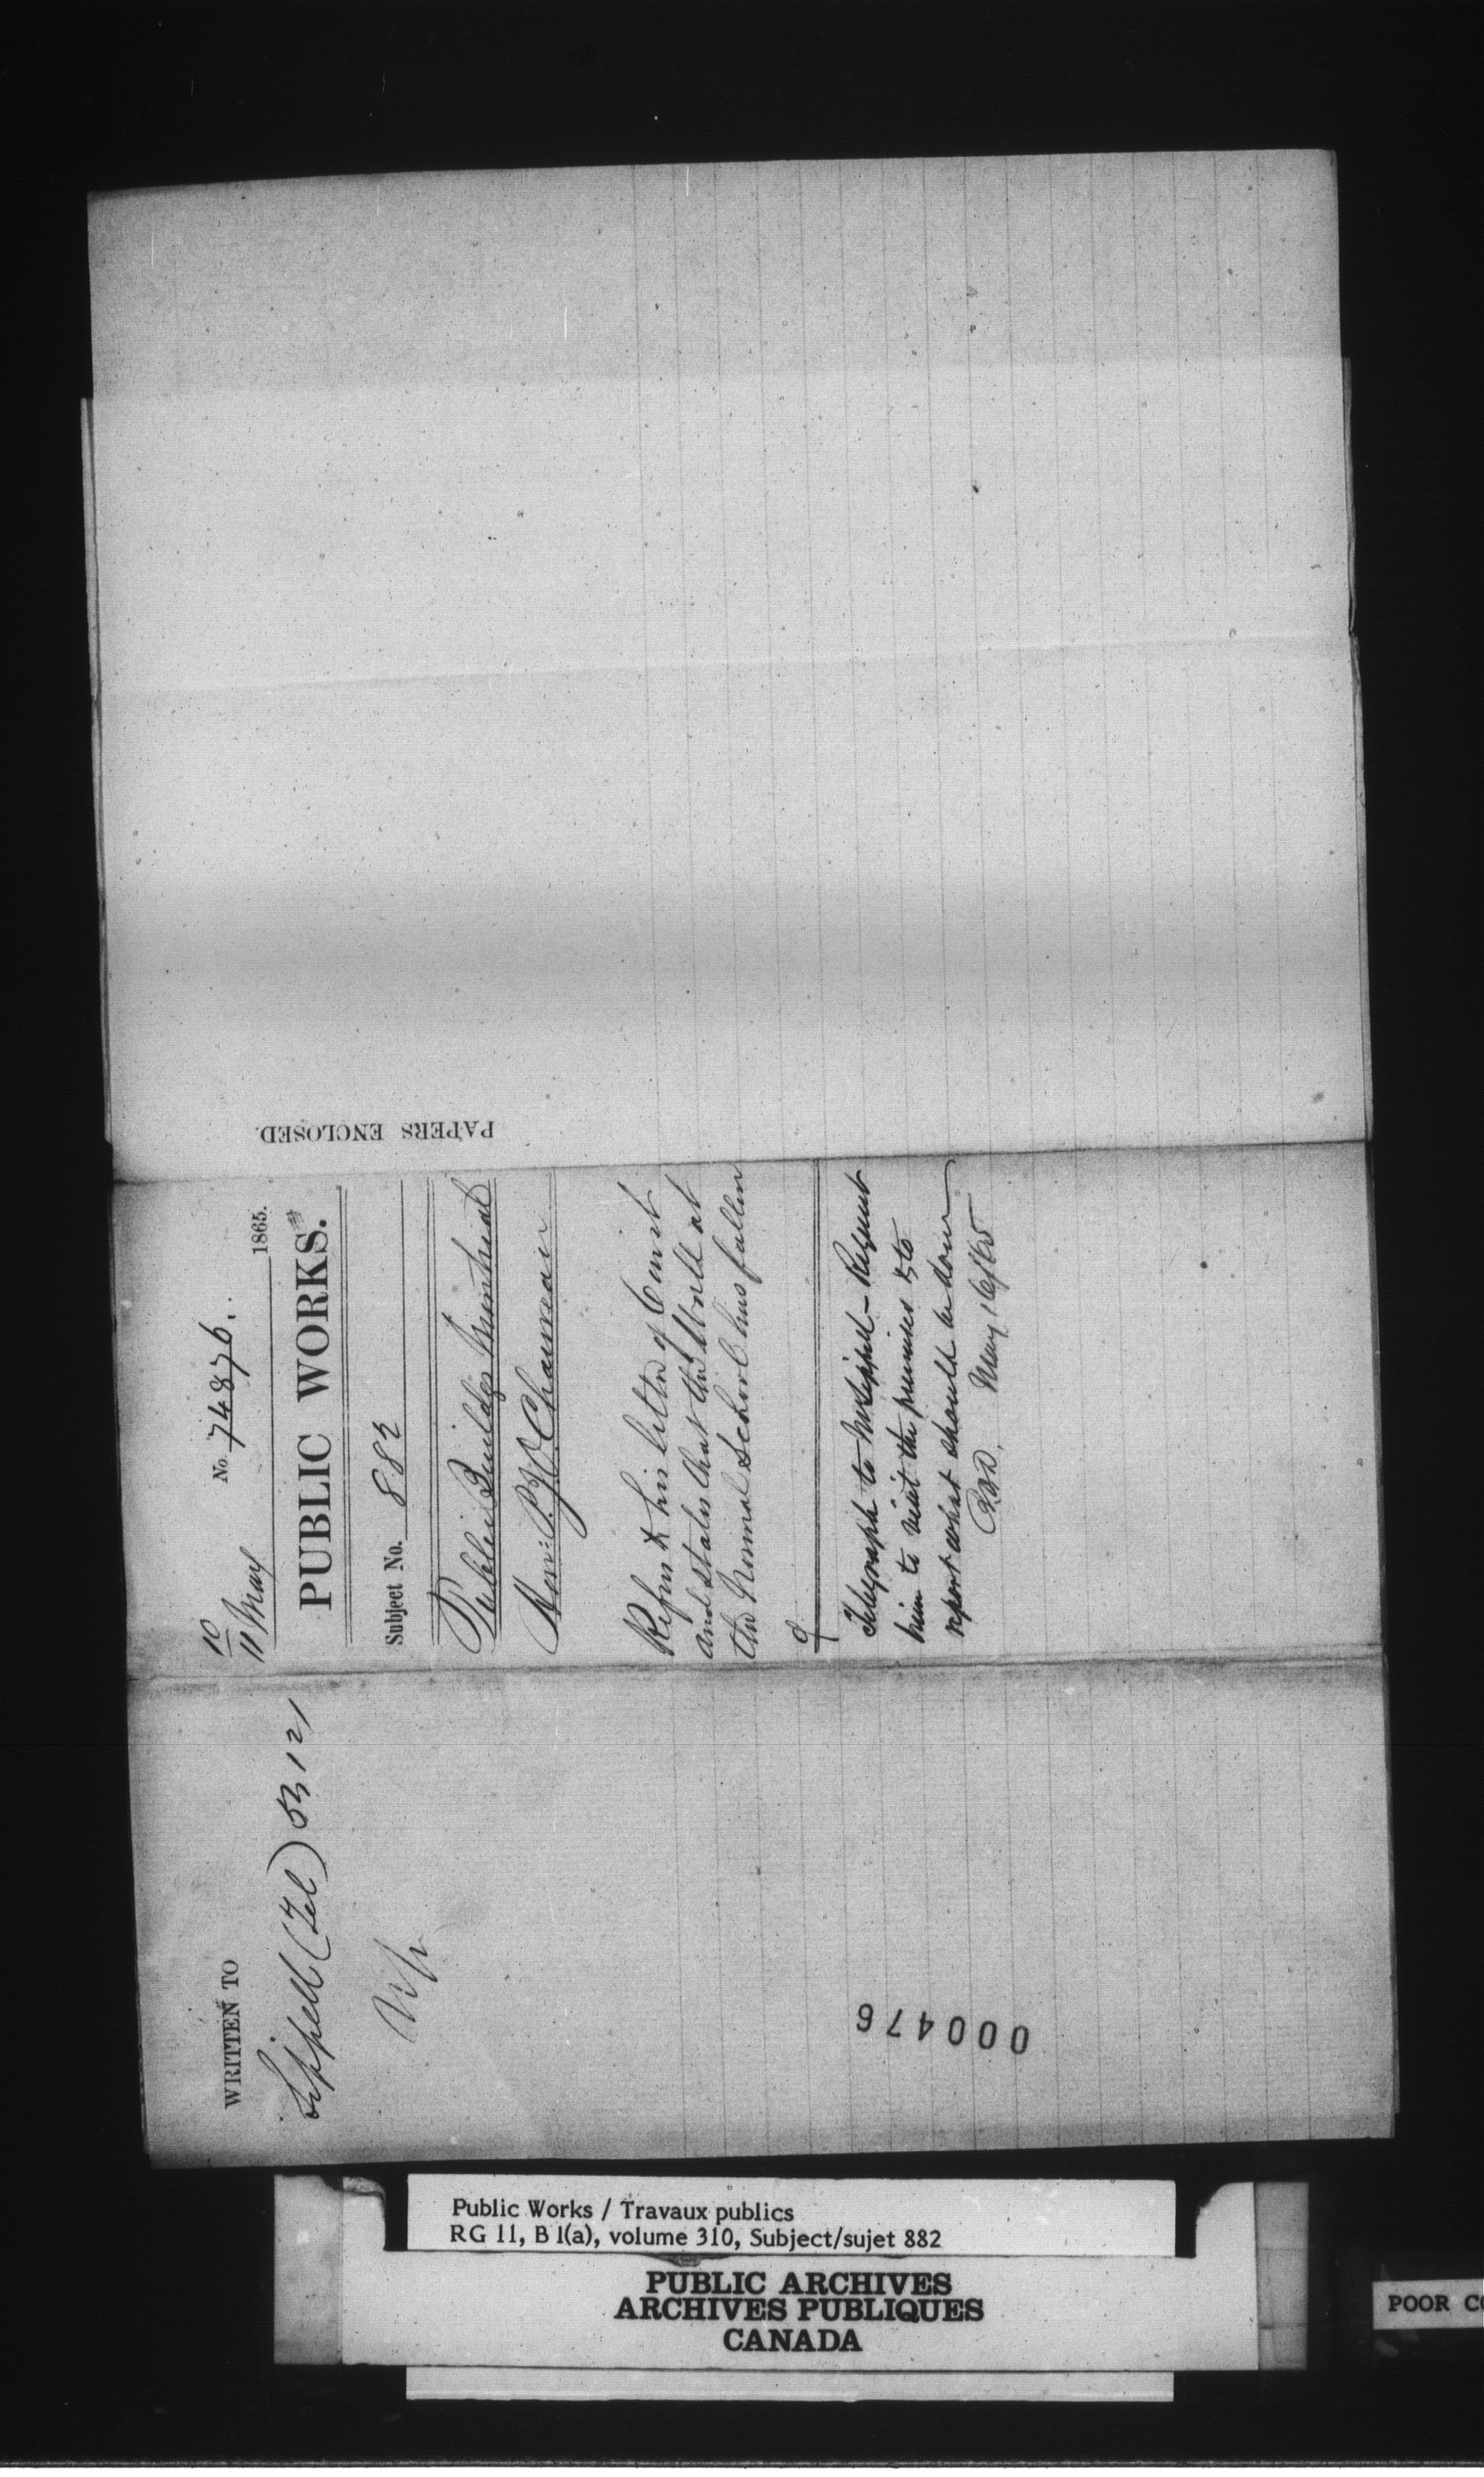 WRITTEN TO
Sippell (Tel) 53121
000476
No. 74876.
10
11 May 1865.
PUBLIC WORKS.
Subject No. 882
Public Buildgs Montreal
Hon: P. J. O. Chauveau
Refers to his letter of 6 inst
and states that the Wall at
the Normal School has fallen
Telegraph to Mr Sippell - Request
him to visit the premises & to
report what should be done
May 16/65
PAPERS ENCLOSED.
Public Works / Travaux publics
RG 11, B 1(a), volume 310, Subject/sujet 882
PUBLIC ARCHIVES
ARCHIVES PUBLIQUES
CANADA
POOR CO